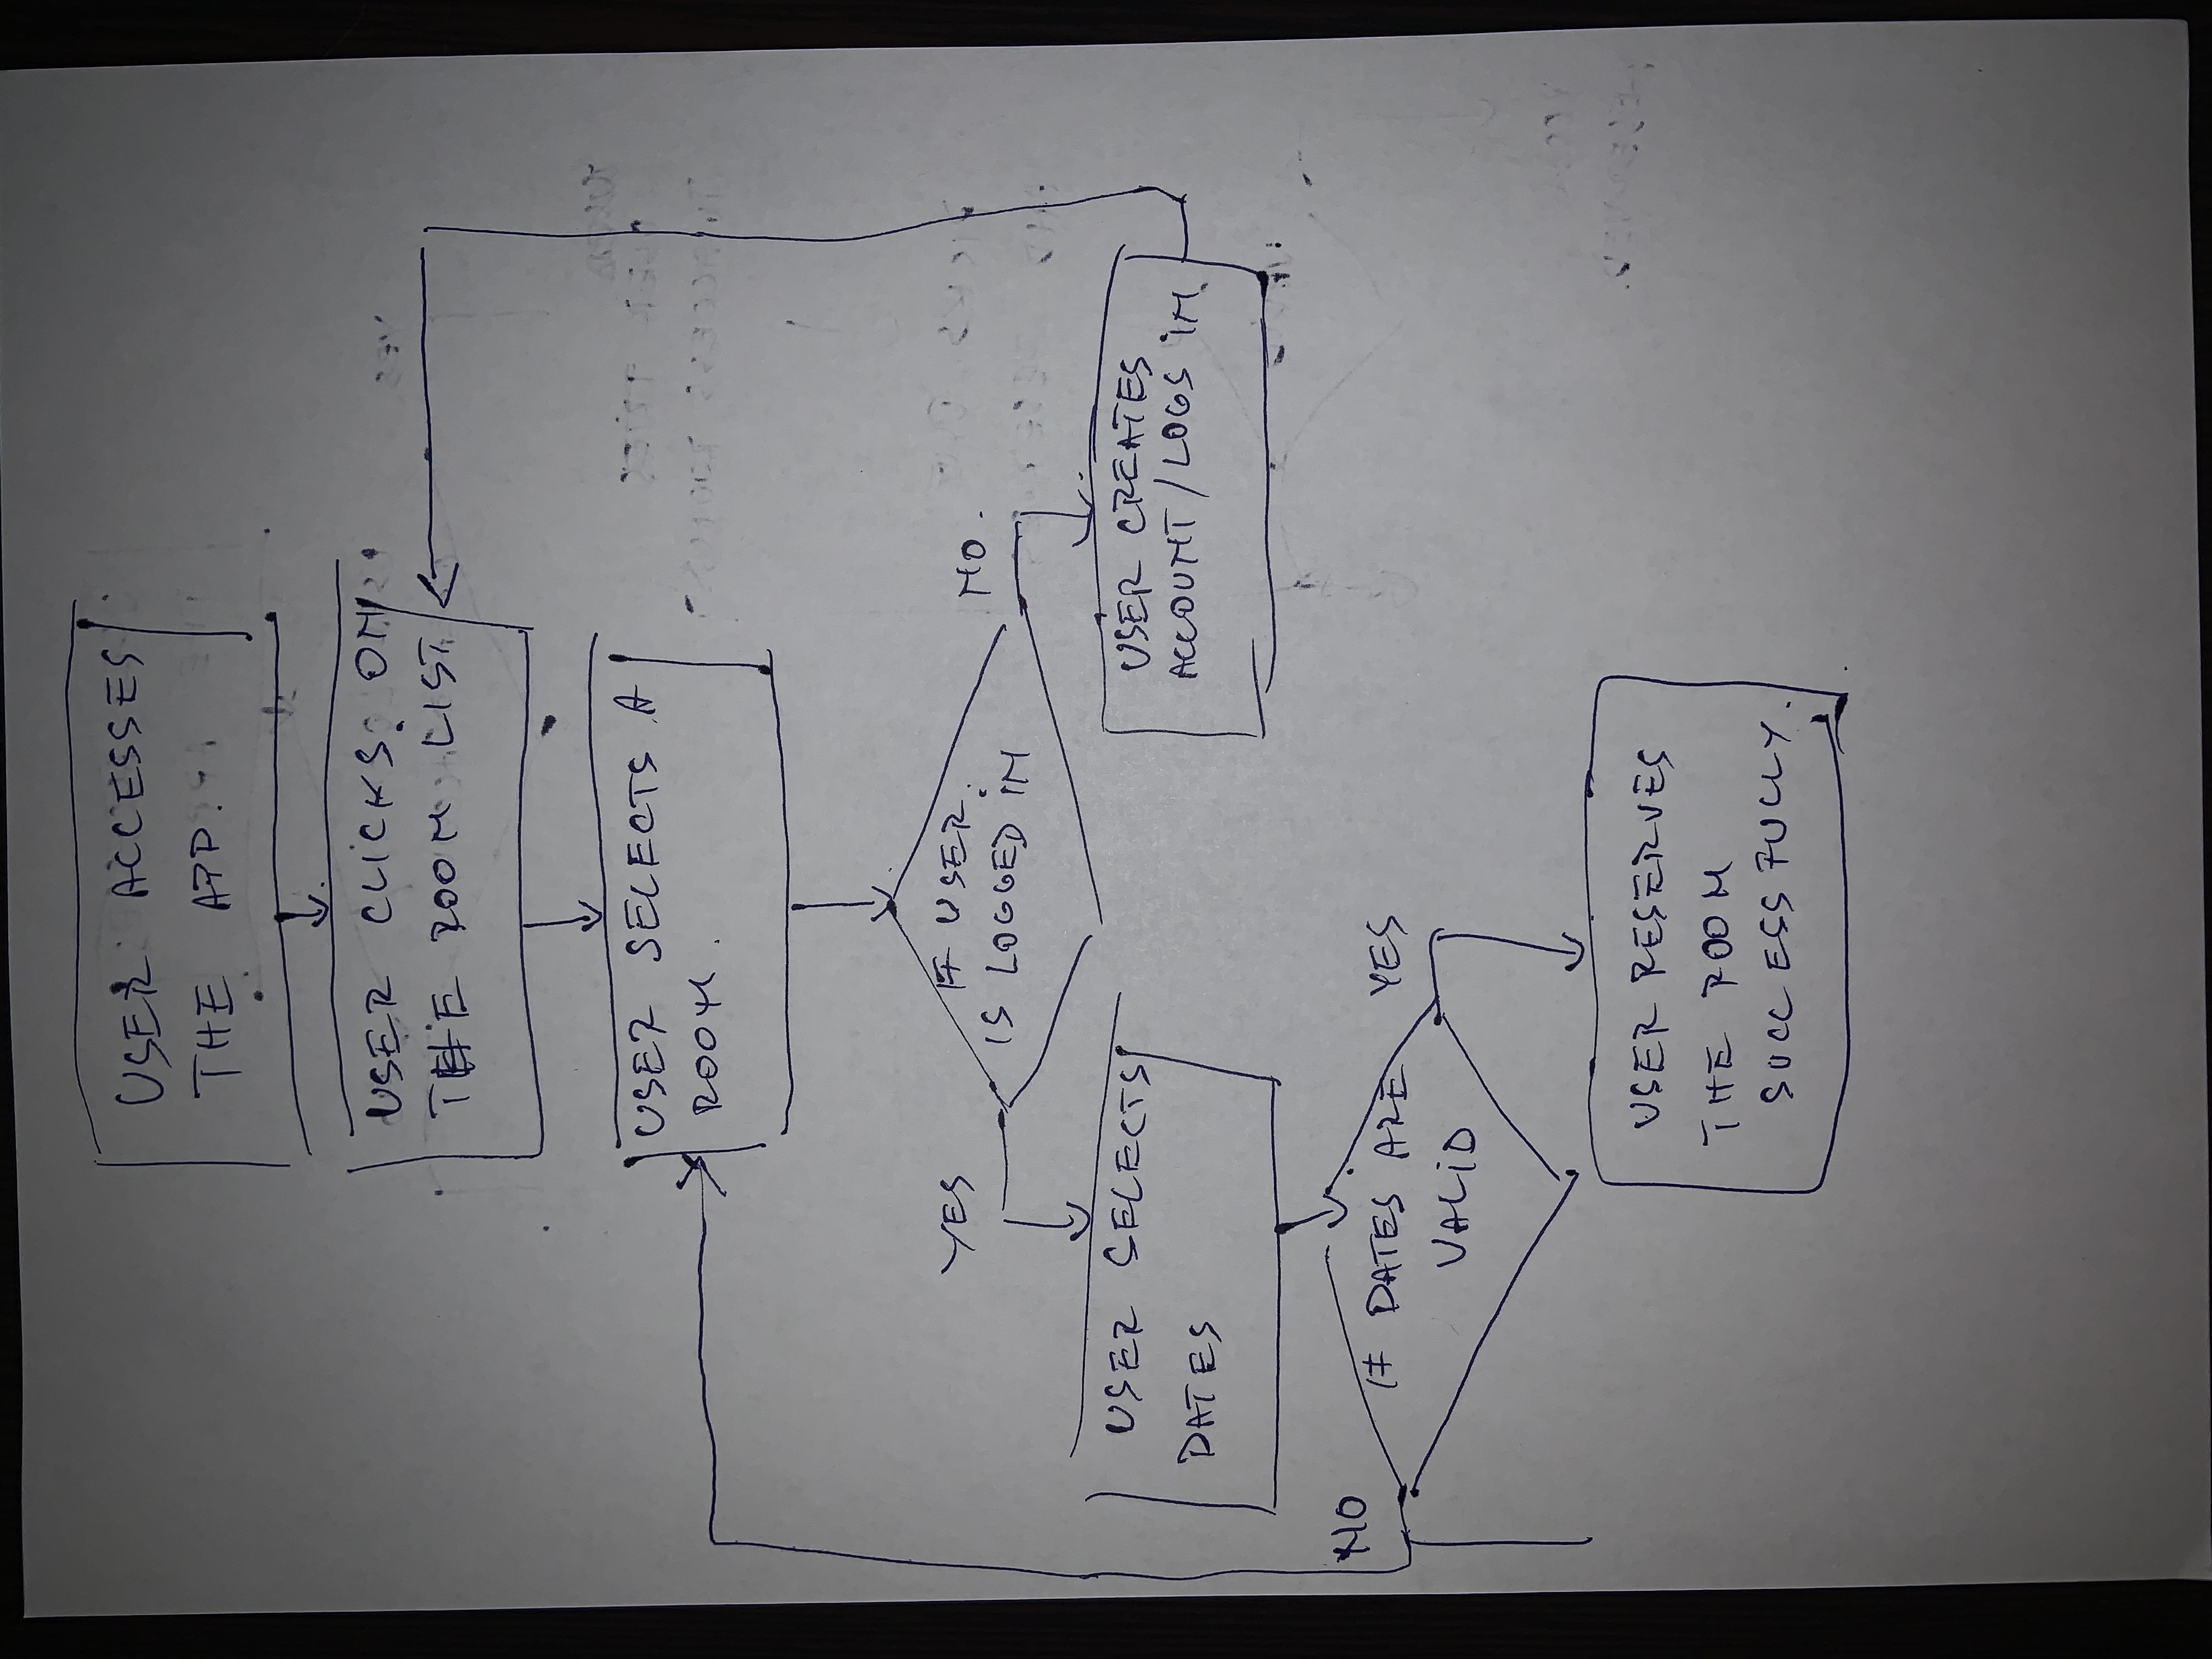 USER ACCESSES
THE APP.
USER CLICKS ON
THE ROOM LIST
USER SELECTS A
ROOM.
YES
IF USER
IS LOGGED IN
NO.
USER SELECTS
DATES
USER CREATES
ACCOUNT/LOGS IN
NO
IF DATES ARE
VALID
YES
USER RESERVES
THE ROOM
SUCCESSFULLY.